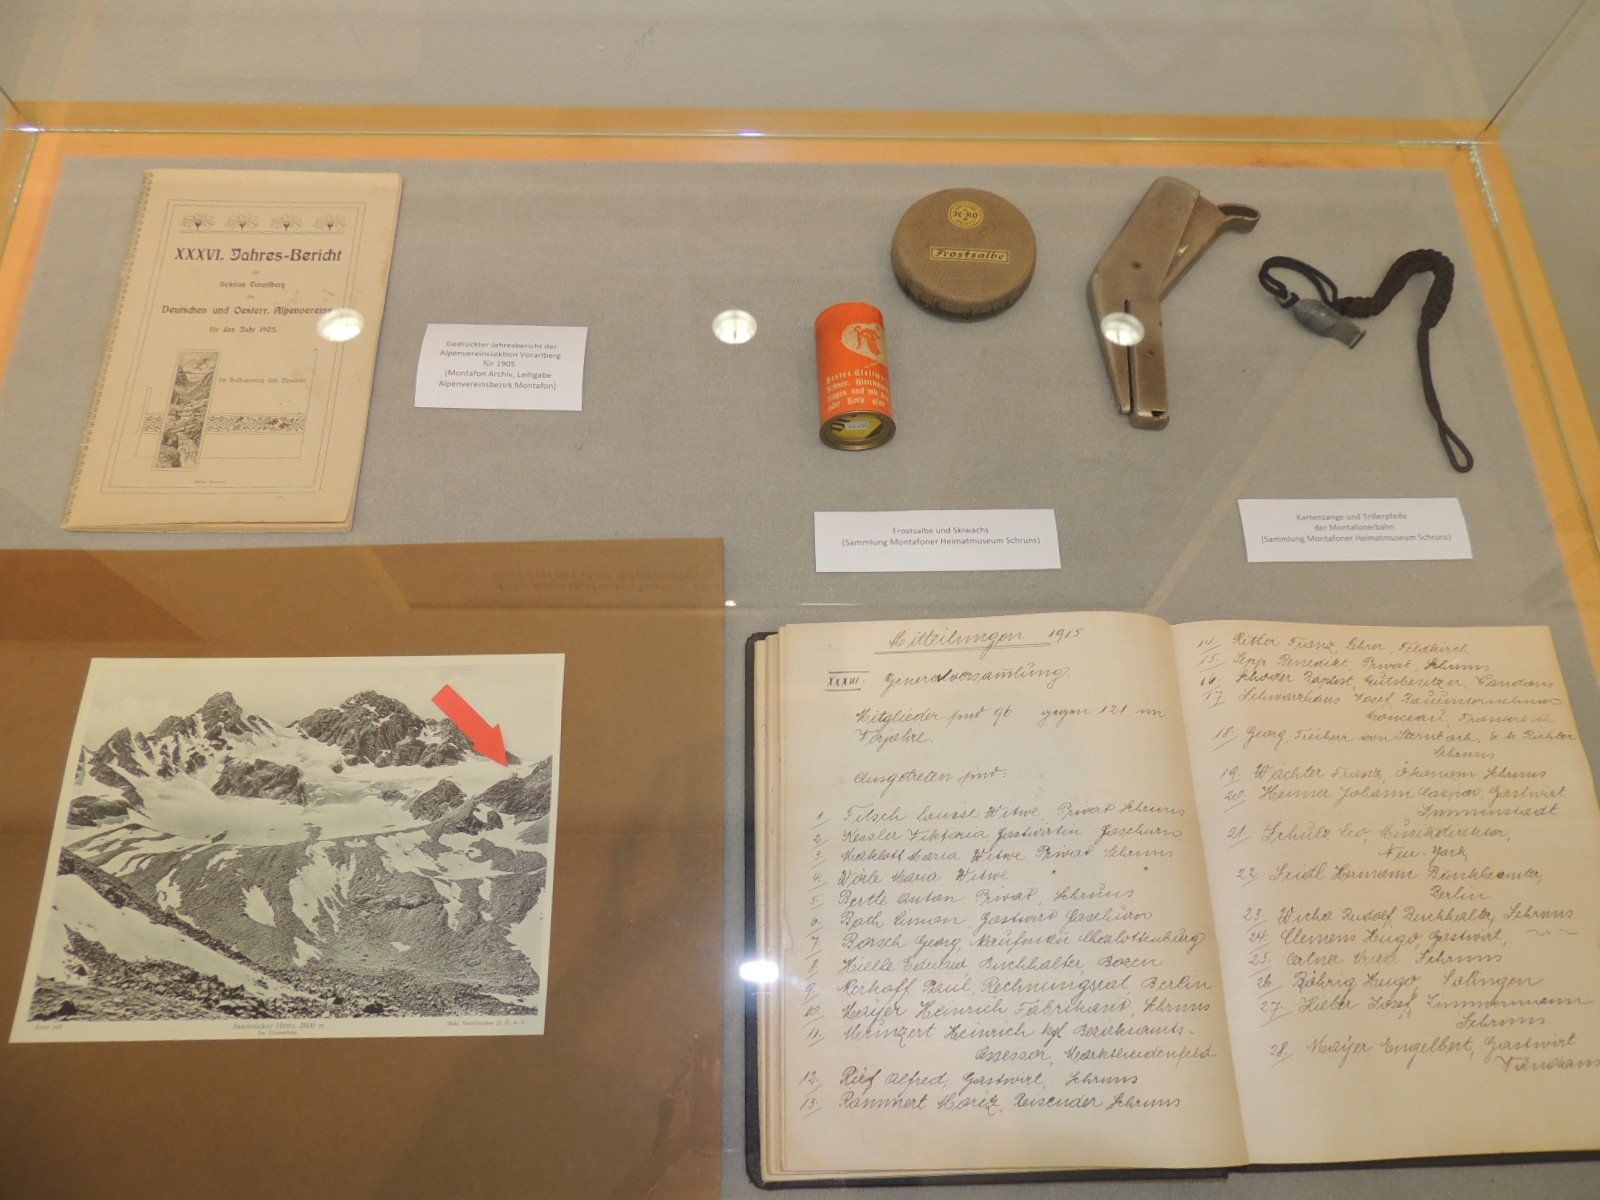 XXXVI. Jahres-Bericht
der
Sektion Vorarlberg
des
Deutschen und Oesterr. Alpenvereins
für das Jahr 1905.
Im Selbstverlag des Vereins.
Gedruckter Jahresbericht der
Alpenvereinssektion Vorarlberg
für 1905
(Montafon Archiv, Leihgabe
Alpenvereinsbezirk Montafon)
Frostsalbe
Schnee. Gleichm
tragen und mit
oder Kork
Frostsalbe und Skiwachs
(Sammlung Montafoner Heimatmuseum Schruns)
Kartenzange und Trillerpfeife
der Montafonerbahn
(Sammlung Montafoner Heimatmuseum Schruns)
Saarbrücker Hütte, 2600 m
Sekt. Saarbrücken D. Ö. A.-V.
Mitteilungen 1915
XXXIII. Generalversamlung.
Mitglieder sind 96 gegen 121 im
Vorjahre.
Ausgetreten sind:
1, Fitsch Louise Witwe, Privat Schruns
2, Kessler Viktoria Gastwirtin Gaschurn
3, Maklott Maria Witwe Privat Schruns
4, Wörle Maria Witwe " "
5, Bertle Anton Privat, Schruns
6, Both Simon, Gastwirt Gaschurn
7, Borsch Georg, Kaufmau Charlottenburg
8, Hielle Eduard Buchhalter, Bozen
9, Kerkoff Paul, Rechnungsrat, Berlin
10, Mayer Heinrich Fabrikant, Schruns
11, Münzert Heinrich kgl Bezirksamts-
Assessor, Marktheidenfeld
12, Rief Alfred, Gastwirt, Schruns
13, Rammert Moriz, Reisender Schruns
14, Ritter Franz, Lehrer, Feldkirch
15, Sepp Benedikt, Privat, Schruns
16, Schoder Baptist, Gutsbesitzer, Vandans
17, Schwarzhans Josef, Bauunternehmer
18, Georg Freiherr von Sternbach, k. k. Richter
Schruns
19, Wächter Franz, Ökonom, Schruns
20, Heimer Johann Caspar, Gastwirt
Immenstadt
21, Schulz Leo, Musikdirektor,
Neu-York,
22, Seidl Hermann Bankbeamter,
Berlin
23, Wicha Rudolf, Buchhalter, Schruns
24, Clemens Hugo, Gastwirt, " "
25, Ortner Schruns
26, Böhrig Hugo, Solingen
27, Hieber Josef, Zimmermann
Schruns
28, Mayer Engelbert, Gastwirt
Vandans